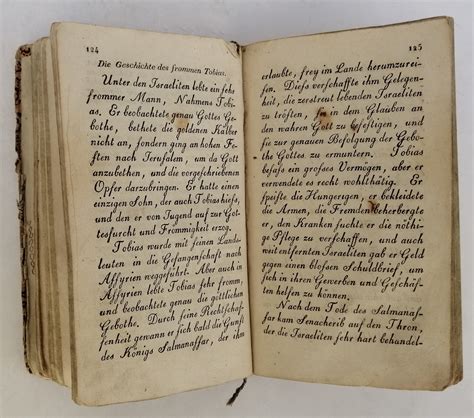 124
Die Geschichte des frommen Tobias.
Unter den Israeliten lebte ein sehr
frommer Mann, Nahmens Tobi-
as. Er beobachtete genau Gottes Ge-
bothe, bethete die goldenen Kälber
nicht an, sondern ging an hohen Fe-
sten nach Jerusalem, um da Gott
anzubethen, und die vorgeschriebenen
Opfer darzubringen. Er hatte einen
einzigen Sohn, der auch Tobias hiefs,
und den er von Jugend auf zur Got-
tesfurcht und Frömmigkeit erzog.
Tobias wurde mit seinen Lands-
leuten in die Gefangenschaft nach
Assyrien weggeführt. Aber auch in
Assyrien lebte Tobias sehr fromm,
und beobachtete genau die göttlichen
Gebothe. Durch seine Rechtschaf-
fenheit gewann er sich bald die Gunst
des Königs Salmanassar, der ihm
125
erlaubte, frey im Lande herumzurei-
sen. Diefs verschaffte ihm Gelegen-
heit, die zerstreut lebenden Israeliten
zu trösten, sie in dem Glauben an
den wahren Gott zu befestigen, und
sie zur genauen Befolgung der Gebo-
the Gottes zu ermuntern. Tobias
besafs ein grofses Vermögen, aber er
verwendete es recht wohlthätig. Er
speiste die Hungerigen, er bekleidete
die Armen, die Fremden beherbergte
er, den Kranken suchte er die nöthi-
ge Pflege zu verschaffen, und auch
weit entfernten Israeliten gab er Geld
gegen einen blofsen Schuldbrief, um
sich in ihren Gewerben und Geschäf-
ten helfen zu können.
Nach dem Tode des Salmanas-
sar kam Senacherib auf den Thron,
der die Israeliten sehr hart behandel-